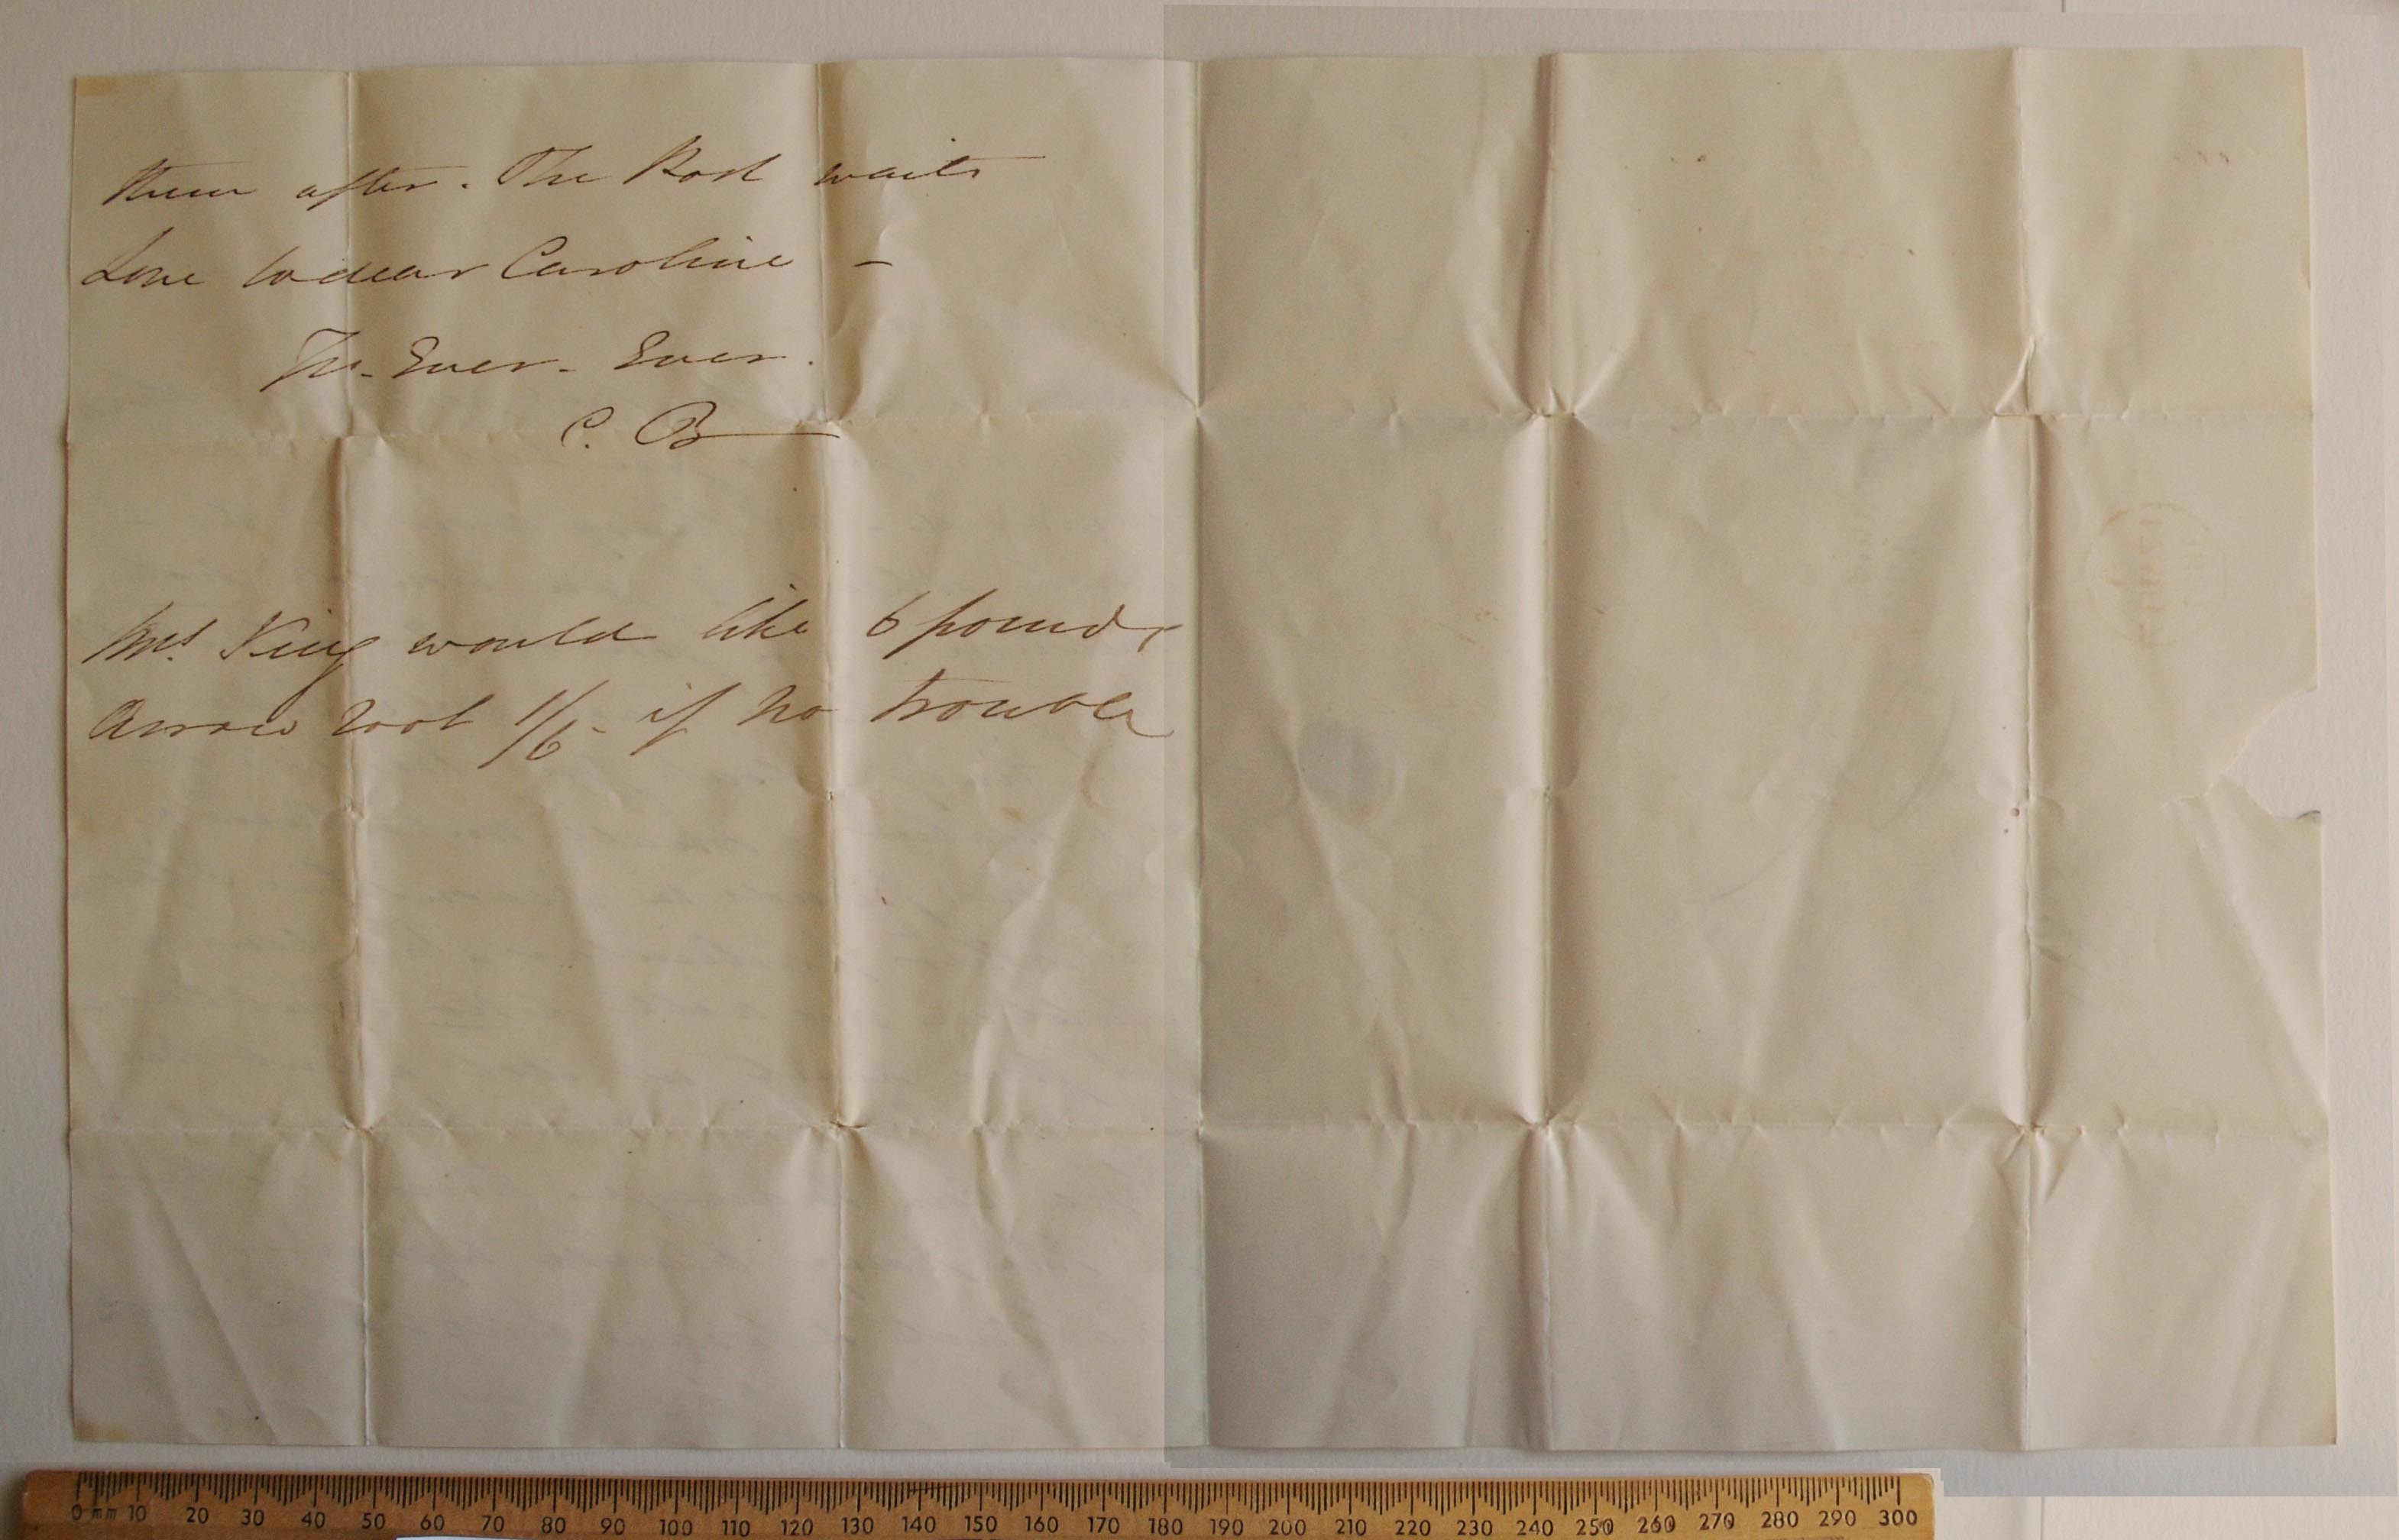 them after. The Post waits
Love to dear Caroline –
Ever. Ever.
C. B
Mrs King would like 6 pounds
Arrow root 1/6 - if no trouble
0 mm 10 20 30 40 50 60 70 80 90 100 110 120 130 140 150 160 170 180 190 200 210 220 230 240 250 260 270 280 290 300